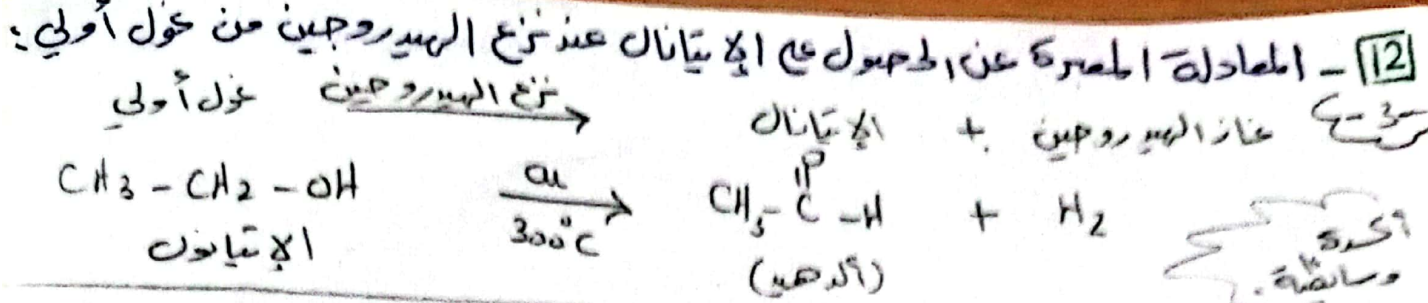 12 - المعادلة المعبرة عن الحصول على الإيتانال عند نزع الهيدروجين من غول أولي :
غول أولي نزع الهيدروجين الإيتانال + غاز الهيدروجين
CH3 - CH2 - OH Cu 300°C CH3 - C - H + H2
O
الإيتانول (ألدهيد)
أكسدة
وساطية.